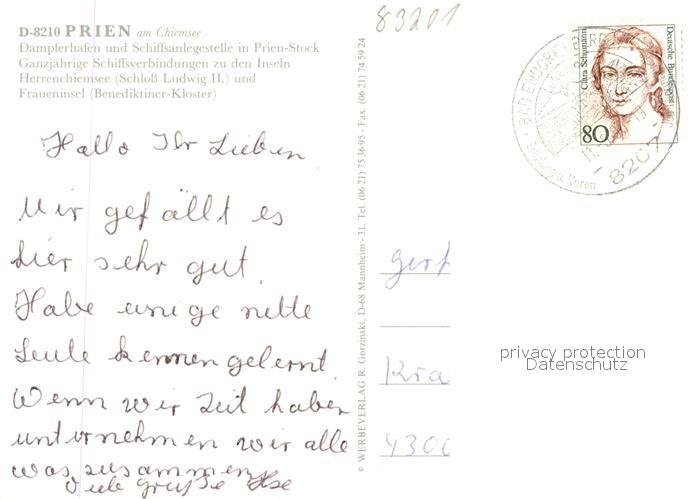 D-8210 PRIEN am Chiemsee
Dampferhafen und Schiffsanlegestelle in Prien-Stock
Ganzjährige Schiffsverbindungen zu den Inseln
Herrenchiemsee (Schloß Ludwig II.) und
Fraueninsel (Benediktiner-Kloster)
83201
Hallo Ihr Lieben
Mir gefällt es
hier sehr gut.
Habe einige nette
Leute kennengelernt.
Wenn wir Zeit haben
unternehmen wir alle
was zusammen
Viele Grüße Ilse
© WERBEVERLAG R. Gorzinski, D-68 Mannheim - 31, Tel. (06 21) 75 36 95 - Fax. (06 21) 74 59 24
Clara Schumann
Deutsche Bundespost
80
BAD ENDORF
8207
Kra
430
privacy protection
Datenschutz